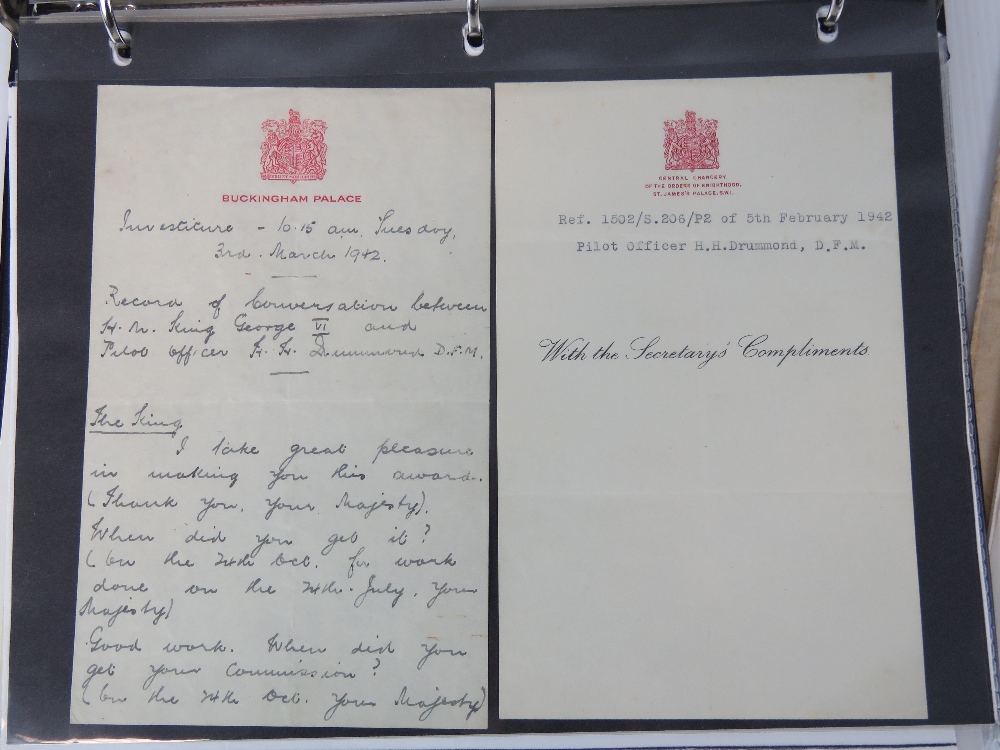 BUCKINGHAM PALACE
Investiture - 10.15 am, Tuesday,
3rd. March 1942.
Record of Conversation between
H. M. King George VI and
Pilot Officer H. H. Drummond D.F.M.
The King
I take great pleasure
in making you this award.
(Thank you, your Majesty).
When did you get it?
(On the 24th Oct. for work
done on the 24th. July, your
Majesty)
Good work. When did you
get your Commission?
(On the 24th Oct. your Majesty)
CENTRAL CHANCERY
OF THE ORDERS OF KNIGHTHOOD,
ST. JAMES'S PALACE, S.W.1.
Ref. 1502/S.206/P2 of 5th February 1942
Pilot Officer H.H.Drummond, D.F.M.
With the Secretary's Compliments